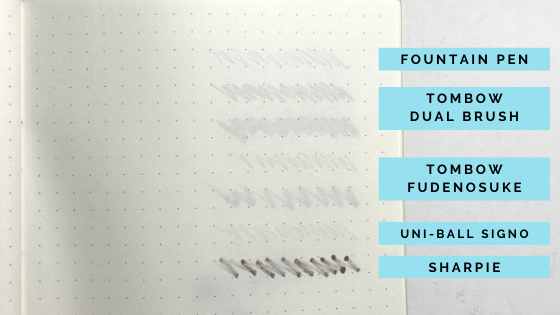 FOUNTAIN PEN
TOMBOW
DUAL BRUSH
TOMBOW
FUDENOSUKE
UNI-BALL SIGNO
SHARPIE